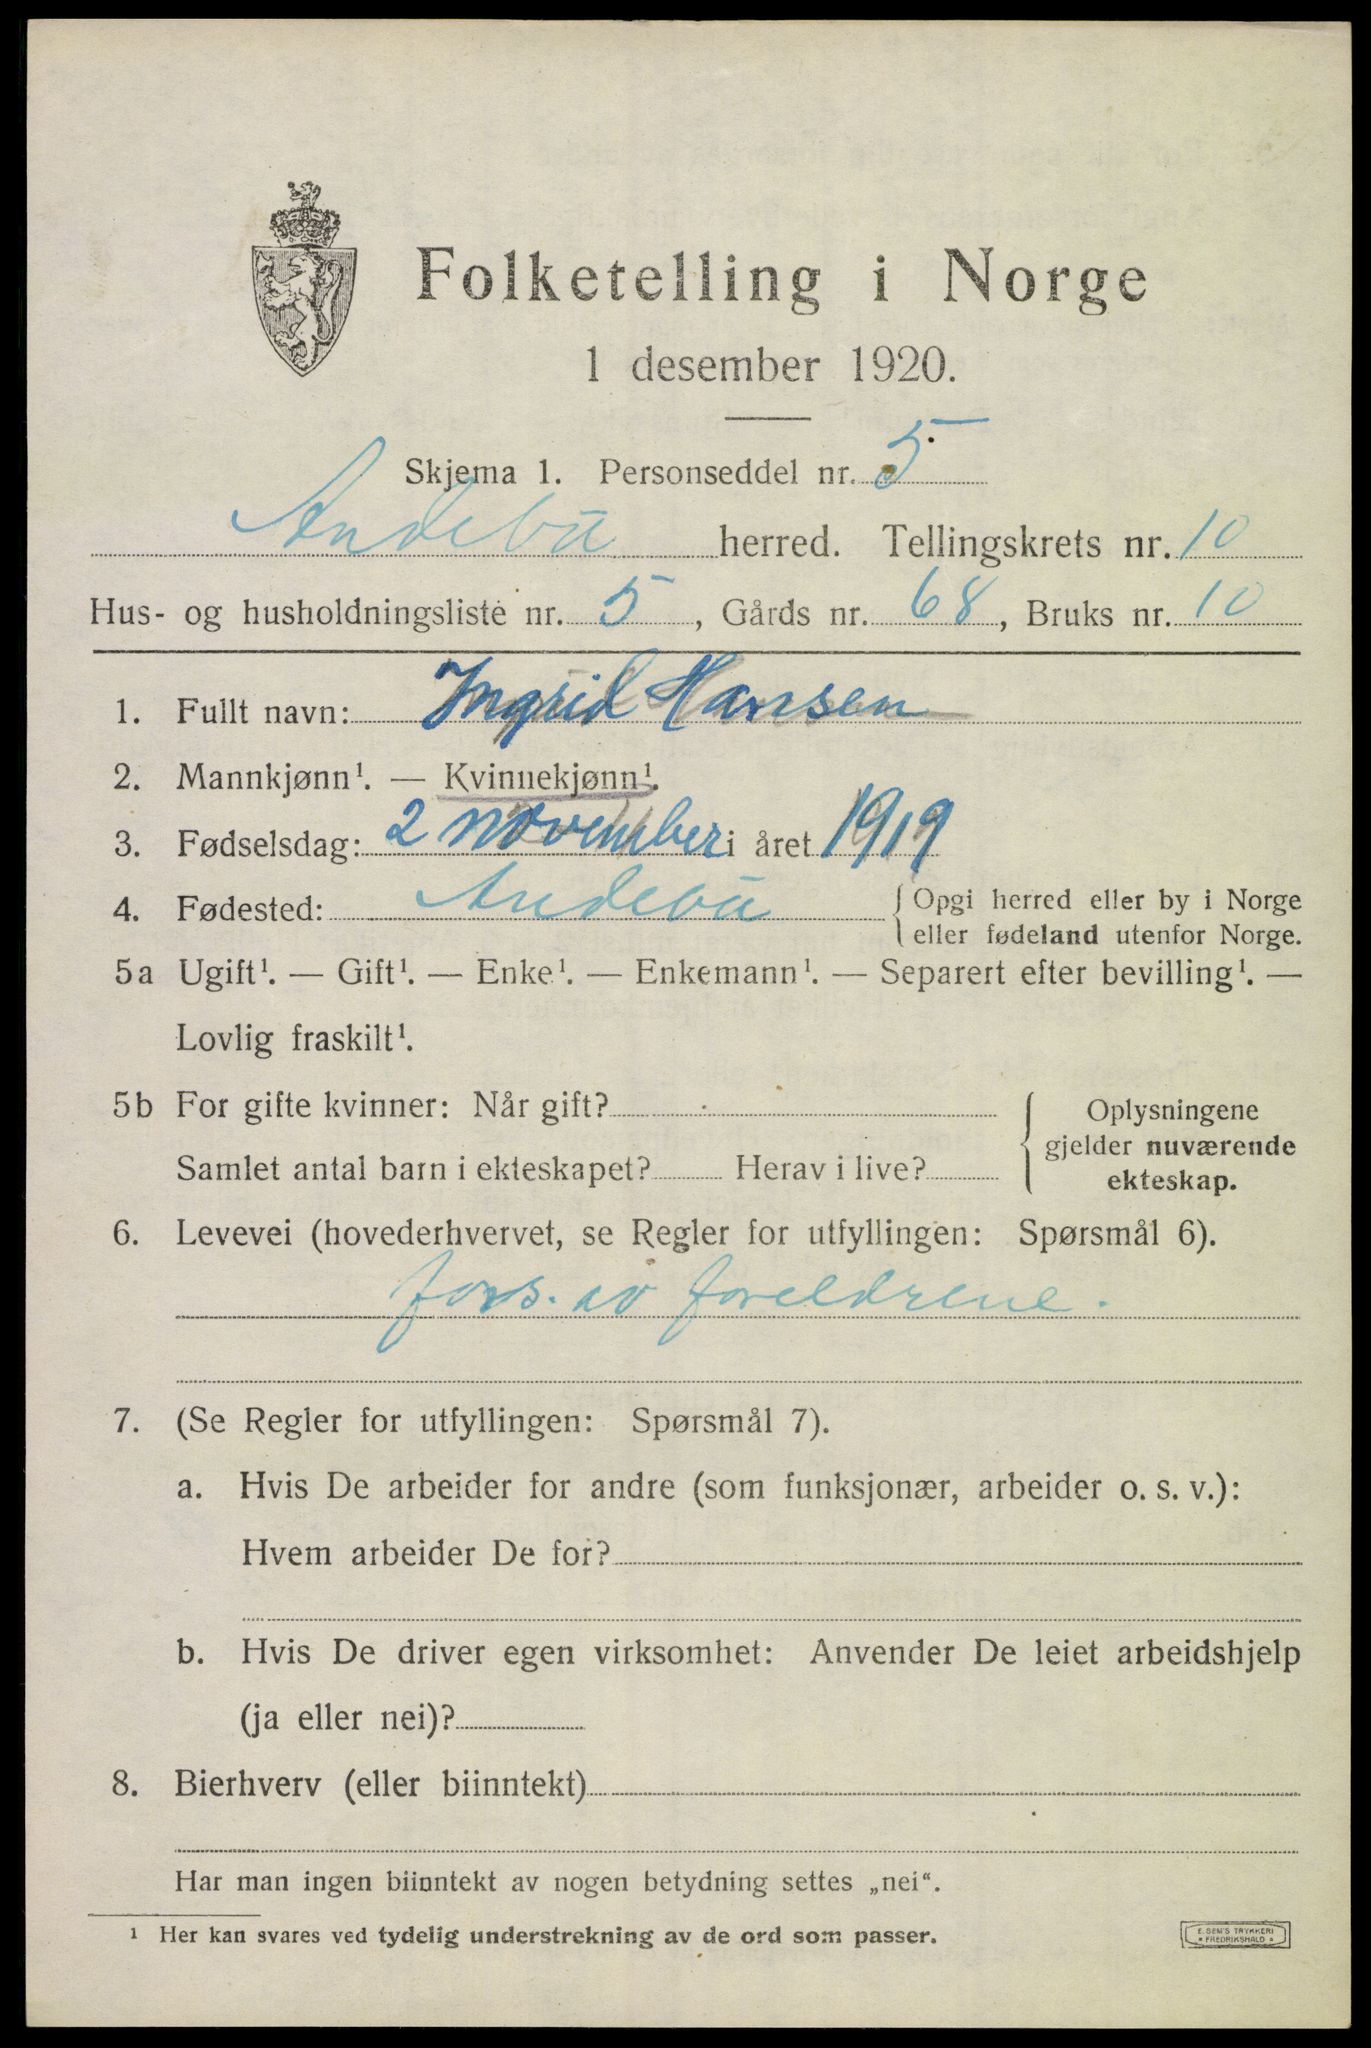 Folketelling i Norge
1 desember 1920.
Skjema 1. Personseddel nr. 5
Andebu herred. Tellingskrets nr. 10
Hus- og husholdningsliste nr. 5, Gårds nr. 68, Bruks nr. 10
1. Fullt navn: Ingrid Hansen
2. Mannkjønn¹. — Kvinnekjønn¹.
3. Fødselsdag: 2 november i året 1919
4. Fødested: Andebu { Opgi herred eller by i Norge
eller fødeland utenfor Norge.
5a Ugift¹. — Gift¹. — Enke¹. — Enkemann¹. — Separert efter bevilling¹. —
Lovlig fraskilt¹.
5b For gifte kvinner: Når gift?
Samlet antal barn i ekteskapet? Herav i live?
{ Oplysningene
gjelder nuværende
ekteskap.
6. Levevei (hovederhvervet, se Regler for utfyllingen: Spørsmål 6).
fors. av foreldrene.
7. (Se Regler for utfyllingen: Spørsmål 7).
a. Hvis De arbeider for andre (som funksjonær, arbeider o. s. v.):
Hvem arbeider De for?
b. Hvis De driver egen virksomhet: Anvender De leiet arbeidshjelp
(ja eller nei)?
8. Bierhverv (eller biinntekt)
Har man ingen biinntekt av nogen betydning settes „nei“.
¹ Her kan svares ved tydelig understrekning av de ord som passer.
E. SEM'S TRYKKERI
FREDRIKSHALD